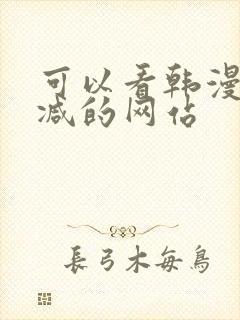 可以看韩漫
减的网估
長弓木每鳥